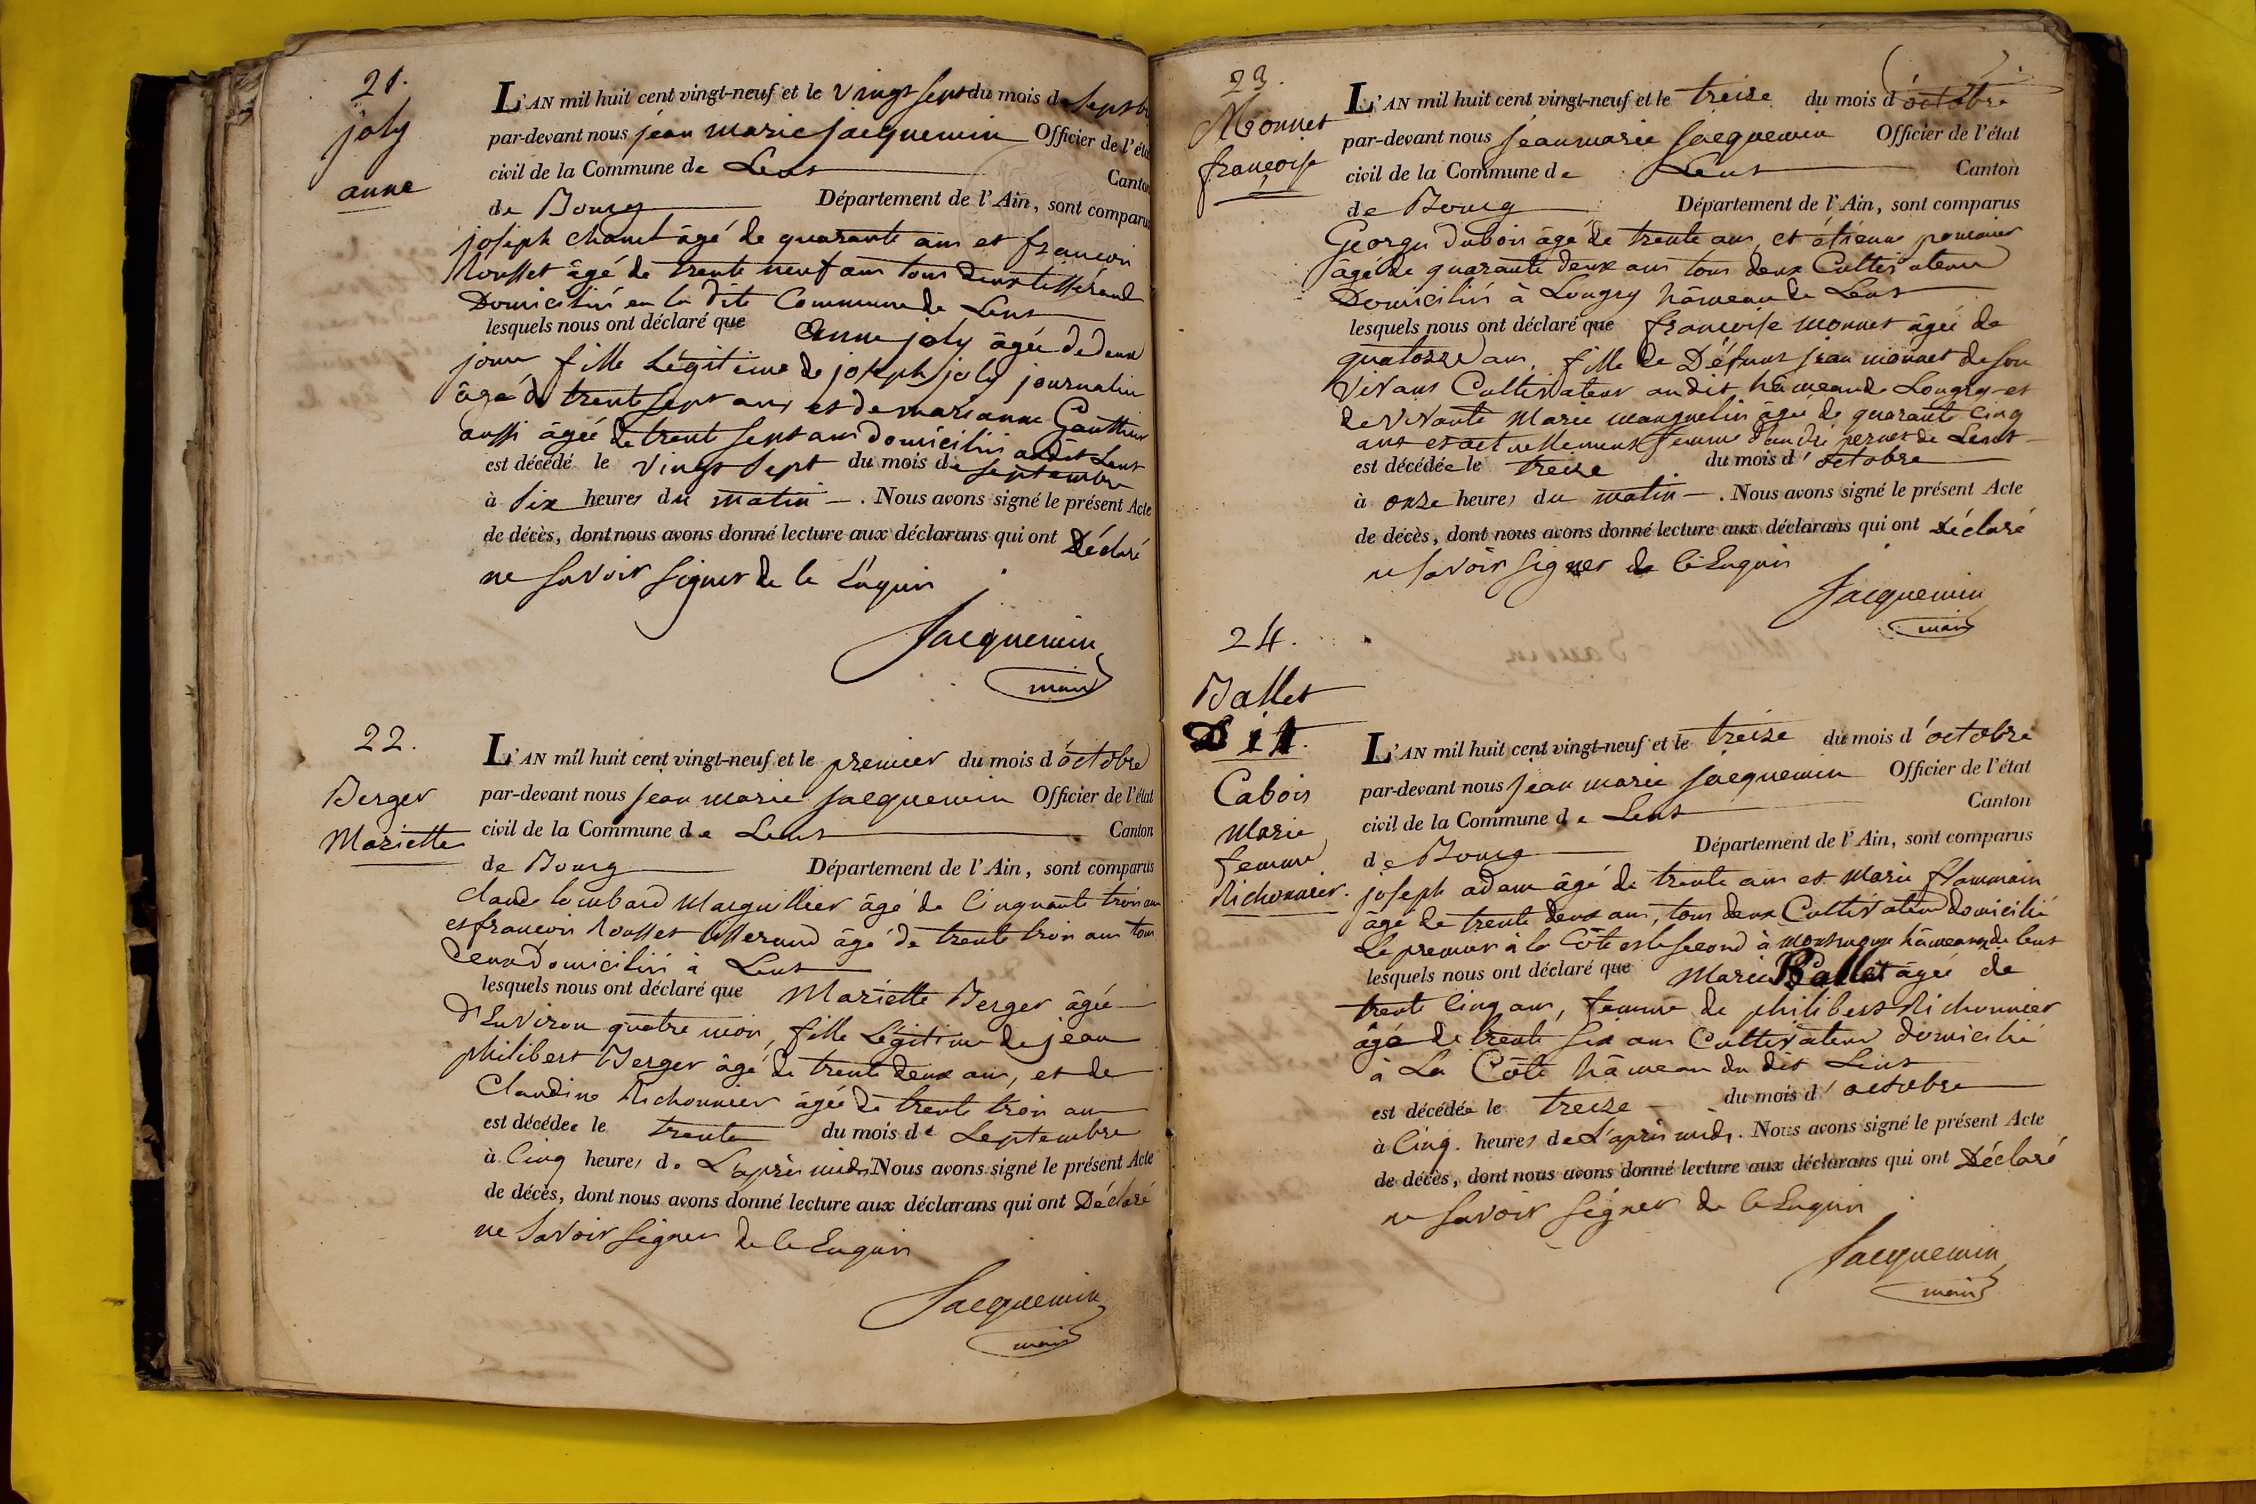 21.
joly
anne
L'AN mil huit cent vingt-neuf et le vingt sept du mois de septbre
par-devant nous jean marie jacquemin Officier de l'état
civil de la Commune de Lent Canton
de Bourg Département de l'Ain, sont comparus
joseph âgé de quarante ans et françois
Rousset âgé de trente neuf ans tous deux tisserand
Domiciliés en la dite Commune de Lent
lesquels nous ont déclaré que anne joly âgée de deux
jours fille Légitime de joseph joly journalier
âgé de trente sept ans et de marianne Gauthier
aussi âgée de trente sept ans domiciliés audit Lent
est décédé le vingt sept du mois de septembre
à six heures du matin. Nous avons signé le présent Acte
de décès, dont nous avons donné lecture aux déclarans qui ont Déclaré
ne savoir signer de ce Enquis
Jacquemin
maire
22.
Berger
Mariette
L'AN mil huit cent vingt-neuf et le premier du mois d'octobre
par-devant nous jean marie jacquemin Officier de l'état
civil de la Commune de Lent Canton
de Bourg Département de l'Ain, sont comparus
claude lombard Marguillier âgé de Cinquante trois ans
et françois Rousset tisserand âgé de trente trois ans tous
deux domiciliés à Lent
lesquels nous ont déclaré que Mariette Berger âgée
d'Environ quatre mois, fille Légitime de jean
philibert Berger âgé de trente deux ans, et de
Claudine Richonnier âgée de trente trois ans
est décédée le trente du mois de Septembre
à Cinq heures de L'après midi Nous avons signé le présent Acte
de décès, dont nous avons donné lecture aux déclarans qui ont Déclaré
ne savoir signer de ce Enquis
Jacquemin
maire
23.
Monnet
françoise
L'AN mil huit cent vingt-neuf et le treize du mois d'octobre
par-devant nous jean marie jacquemin Officier de l'état
civil de la Commune de Lent Canton
de Bourg Département de l'Ain, sont comparus
George Dubois âgé de trente ans, et étienne
âgé de quarante deux ans tous deux Cultivateur
Domiciliés à Longry hâmeau de Lent
lesquels nous ont déclaré que françoise monnet âgée de
quatorze ans, fille de Défunt jean monnet de son
vivant Cultivateur au dit hâmeau de Longry et
de vivante Marie manguelin âgée de quarante cinq
ans et actuellement femme d'andré pernet de Lent
est décédée le treize du mois d'octobre
à onze heures du matin. Nous avons signé le présent Acte
de décès, dont nous avons donné lecture aux déclarans qui ont Déclaré
ne savoir signer de ce Enquis
Jacquemin
maire
24.
Ballet
Dit.
Cabois
Marie
femme
Richonnier.
L'AN mil huit cent vingt-neuf et le treize du mois d'octobre
par-devant nous jean marie jacquemin Officier de l'état
civil de la Commune de Lent Canton
de Bourg Département de l'Ain, sont comparus
joseph adam âgé de trente ans et Marie flammain
âgé de trente deux ans, tous deux Cultivateur domicilié
Le premier à la Côte et le second à hâmeaux de lent
lesquels nous ont déclaré que Marie Ballet âgée de
trente Cinq ans, femme de philibert Richonnier
âgé de trente six ans Cultivateur domicilié
à La Côte hâmeau du dit Lent
est décédée le treize du mois d'octobre
à Cinq heures de L'après midi. Nous avons signé le présent Acte
de décès, dont nous avons donné lecture aux déclarans qui ont Déclaré
ne savoir signer de ce Enquis
Jacquemin
maire